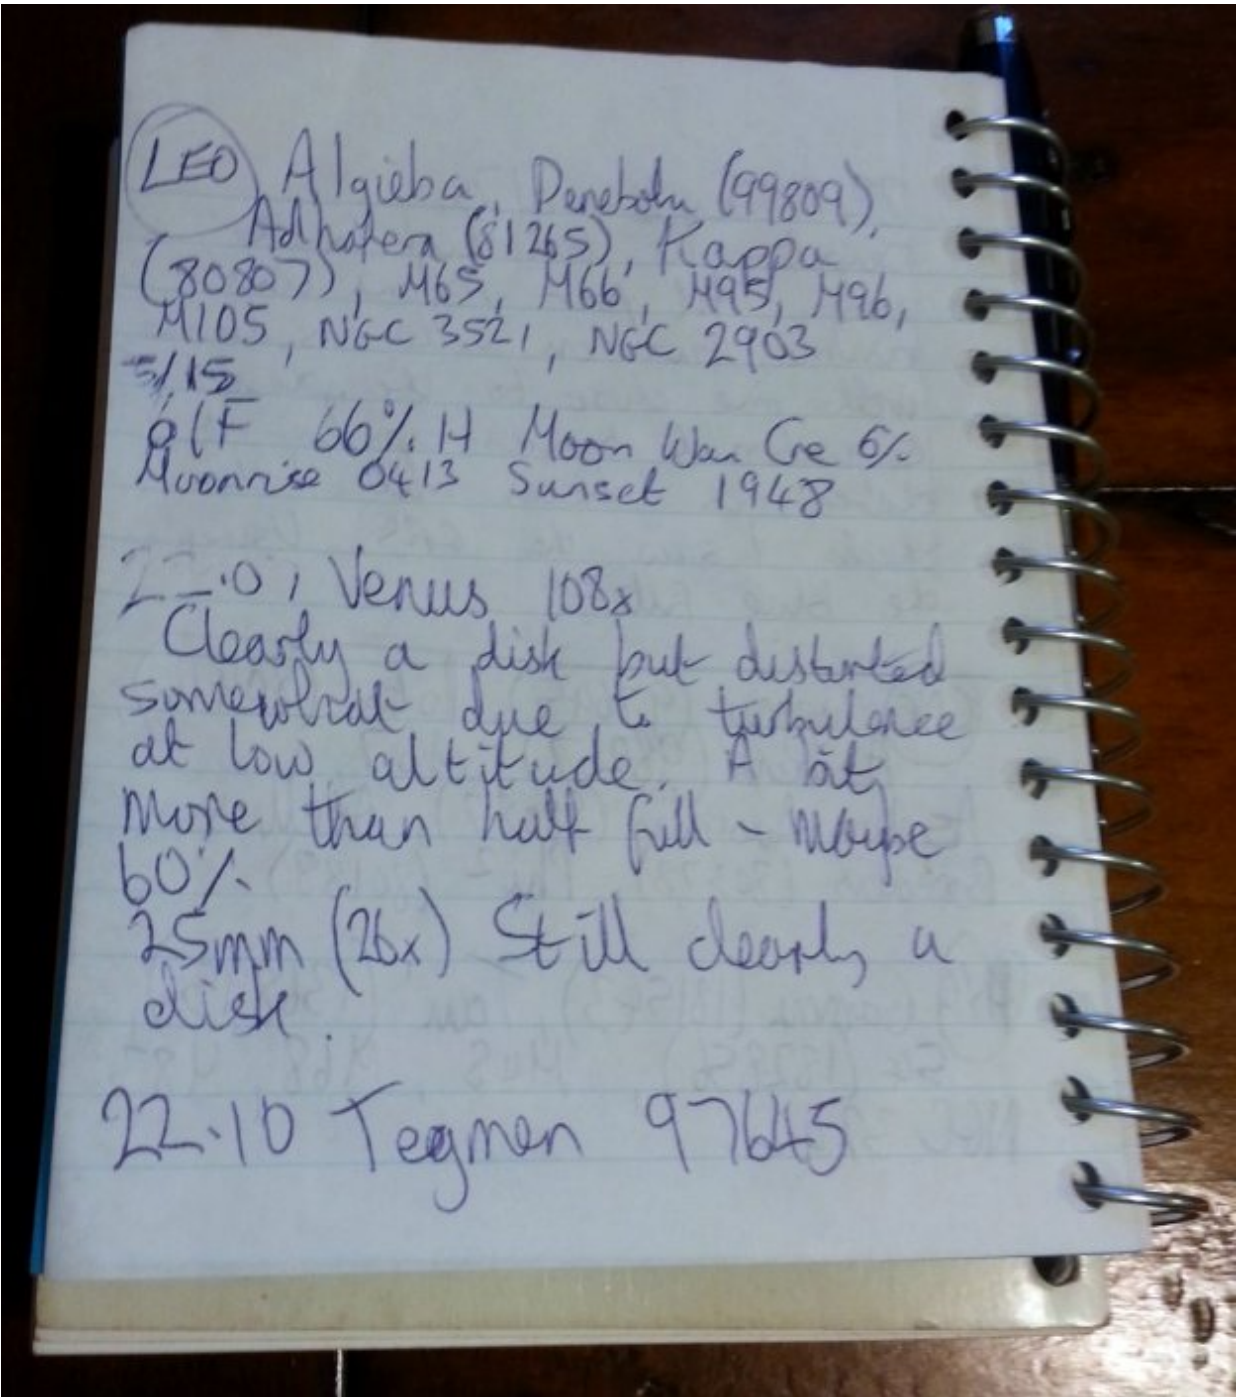 LEO Algieba, Denebola (99809),
Adhafera (81265), Kappa
(80807), M65, M66, M95, M96,
M105, NGC 3521, NGC 2903
5/15
66% H Moon Wan Cre 6%
Moonrise 0413 Sunset 1948
Venus 108x
Clearly a disk but distorted
somewhat due to turbulence
at low altitude. A bit
more than half full - maybe
60%.
25mm (26x) Still clearly a
disk.
22.10 Tegmen 97645